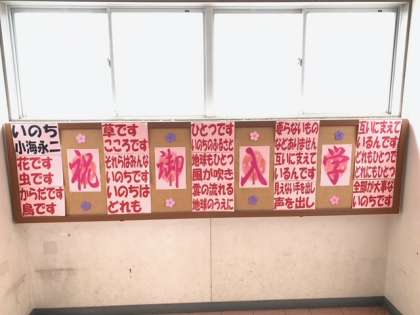 いのち
小海永二
花です
虫です
からだです
鳥です
祝
草です
こころです
それらはみんな
いのちです
いのちは
どれも
御
ひとつです
いのちのふるさと
地球もひとつ
風が吹き
雲の流れる
地球のうえに
入
要らないもの
などありません
互いに支えて
いるんです
見えない手を出し
声を出し
学
互いに支えて
いるんです
どれもひとつで
どれにもひとつ
全部が大事な
いのちです